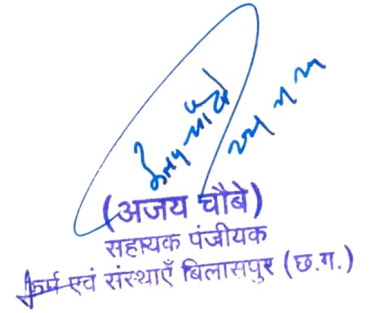 (अजय चौबे)
सहायक पंजीयक
फर्म एवं संस्थाएँ बिलासपुर (छ.ग.)